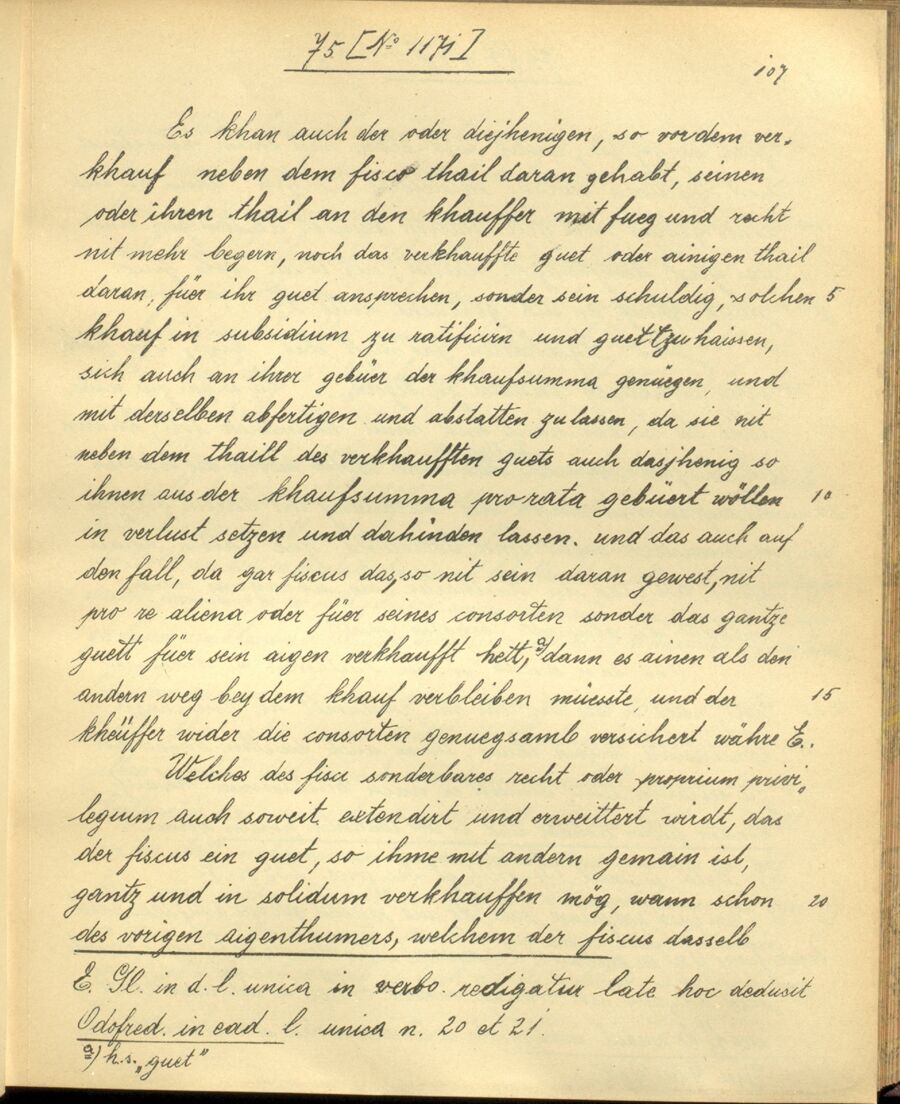 75 [No 117j]
107
Es khan auch der oder diejhenigen, so vor dem ver-
khauf neben dem fisco thail daran gehabt, seinen
oder ihren thail an den khauffer mit fueg und recht
nit mehr begern, noch das verkhauffte guet oder ainigen thail
daran, füer ihr guet ansprechen, sonder sein schuldig, solchen 5
khauf in subsidium zu ratificirn und guett zu haissen,
sich auch an ihrer gebüer der khaufsumma genüegen, und
mit derselben abfertigen und abstatten zu lassen, da sie nit
neben dem thaill des verkhaufften guets auch dasjhenig so
ihnen aus der khaufsumma pro rata gebüert wöllen 10
in verlust setzen und dahinden lassen. und das auch auf
den fall, da gar fiscus das, so nit sein daran gewest, nit
pro re aliena oder füer seines consorten sonder das gantze
guett füer sein aigen verkhaufft hett, a) dann es ainen als den
andern weg bey dem khauf verbleiben müesste, und der 15
kheüffer wider die consorten genuegsamb versichert währe E..
Welches des fisci sonderbares recht oder proprium privi-
legium auch soweit extendirt und erweittert wirdt, das
der fiscus ein guet, so ihme mit andern gemain ist,
gantz und in solidum verkhauffen mög, wann schon 20
des vorigen aigenthumers, welchem der fiscus dasselb
E. Gl. in d. l. unica in verbo. redigatur late hoc dedusit
Odofred. in ead. l. unica n. 20 et 21.
a) h.s. „guet"